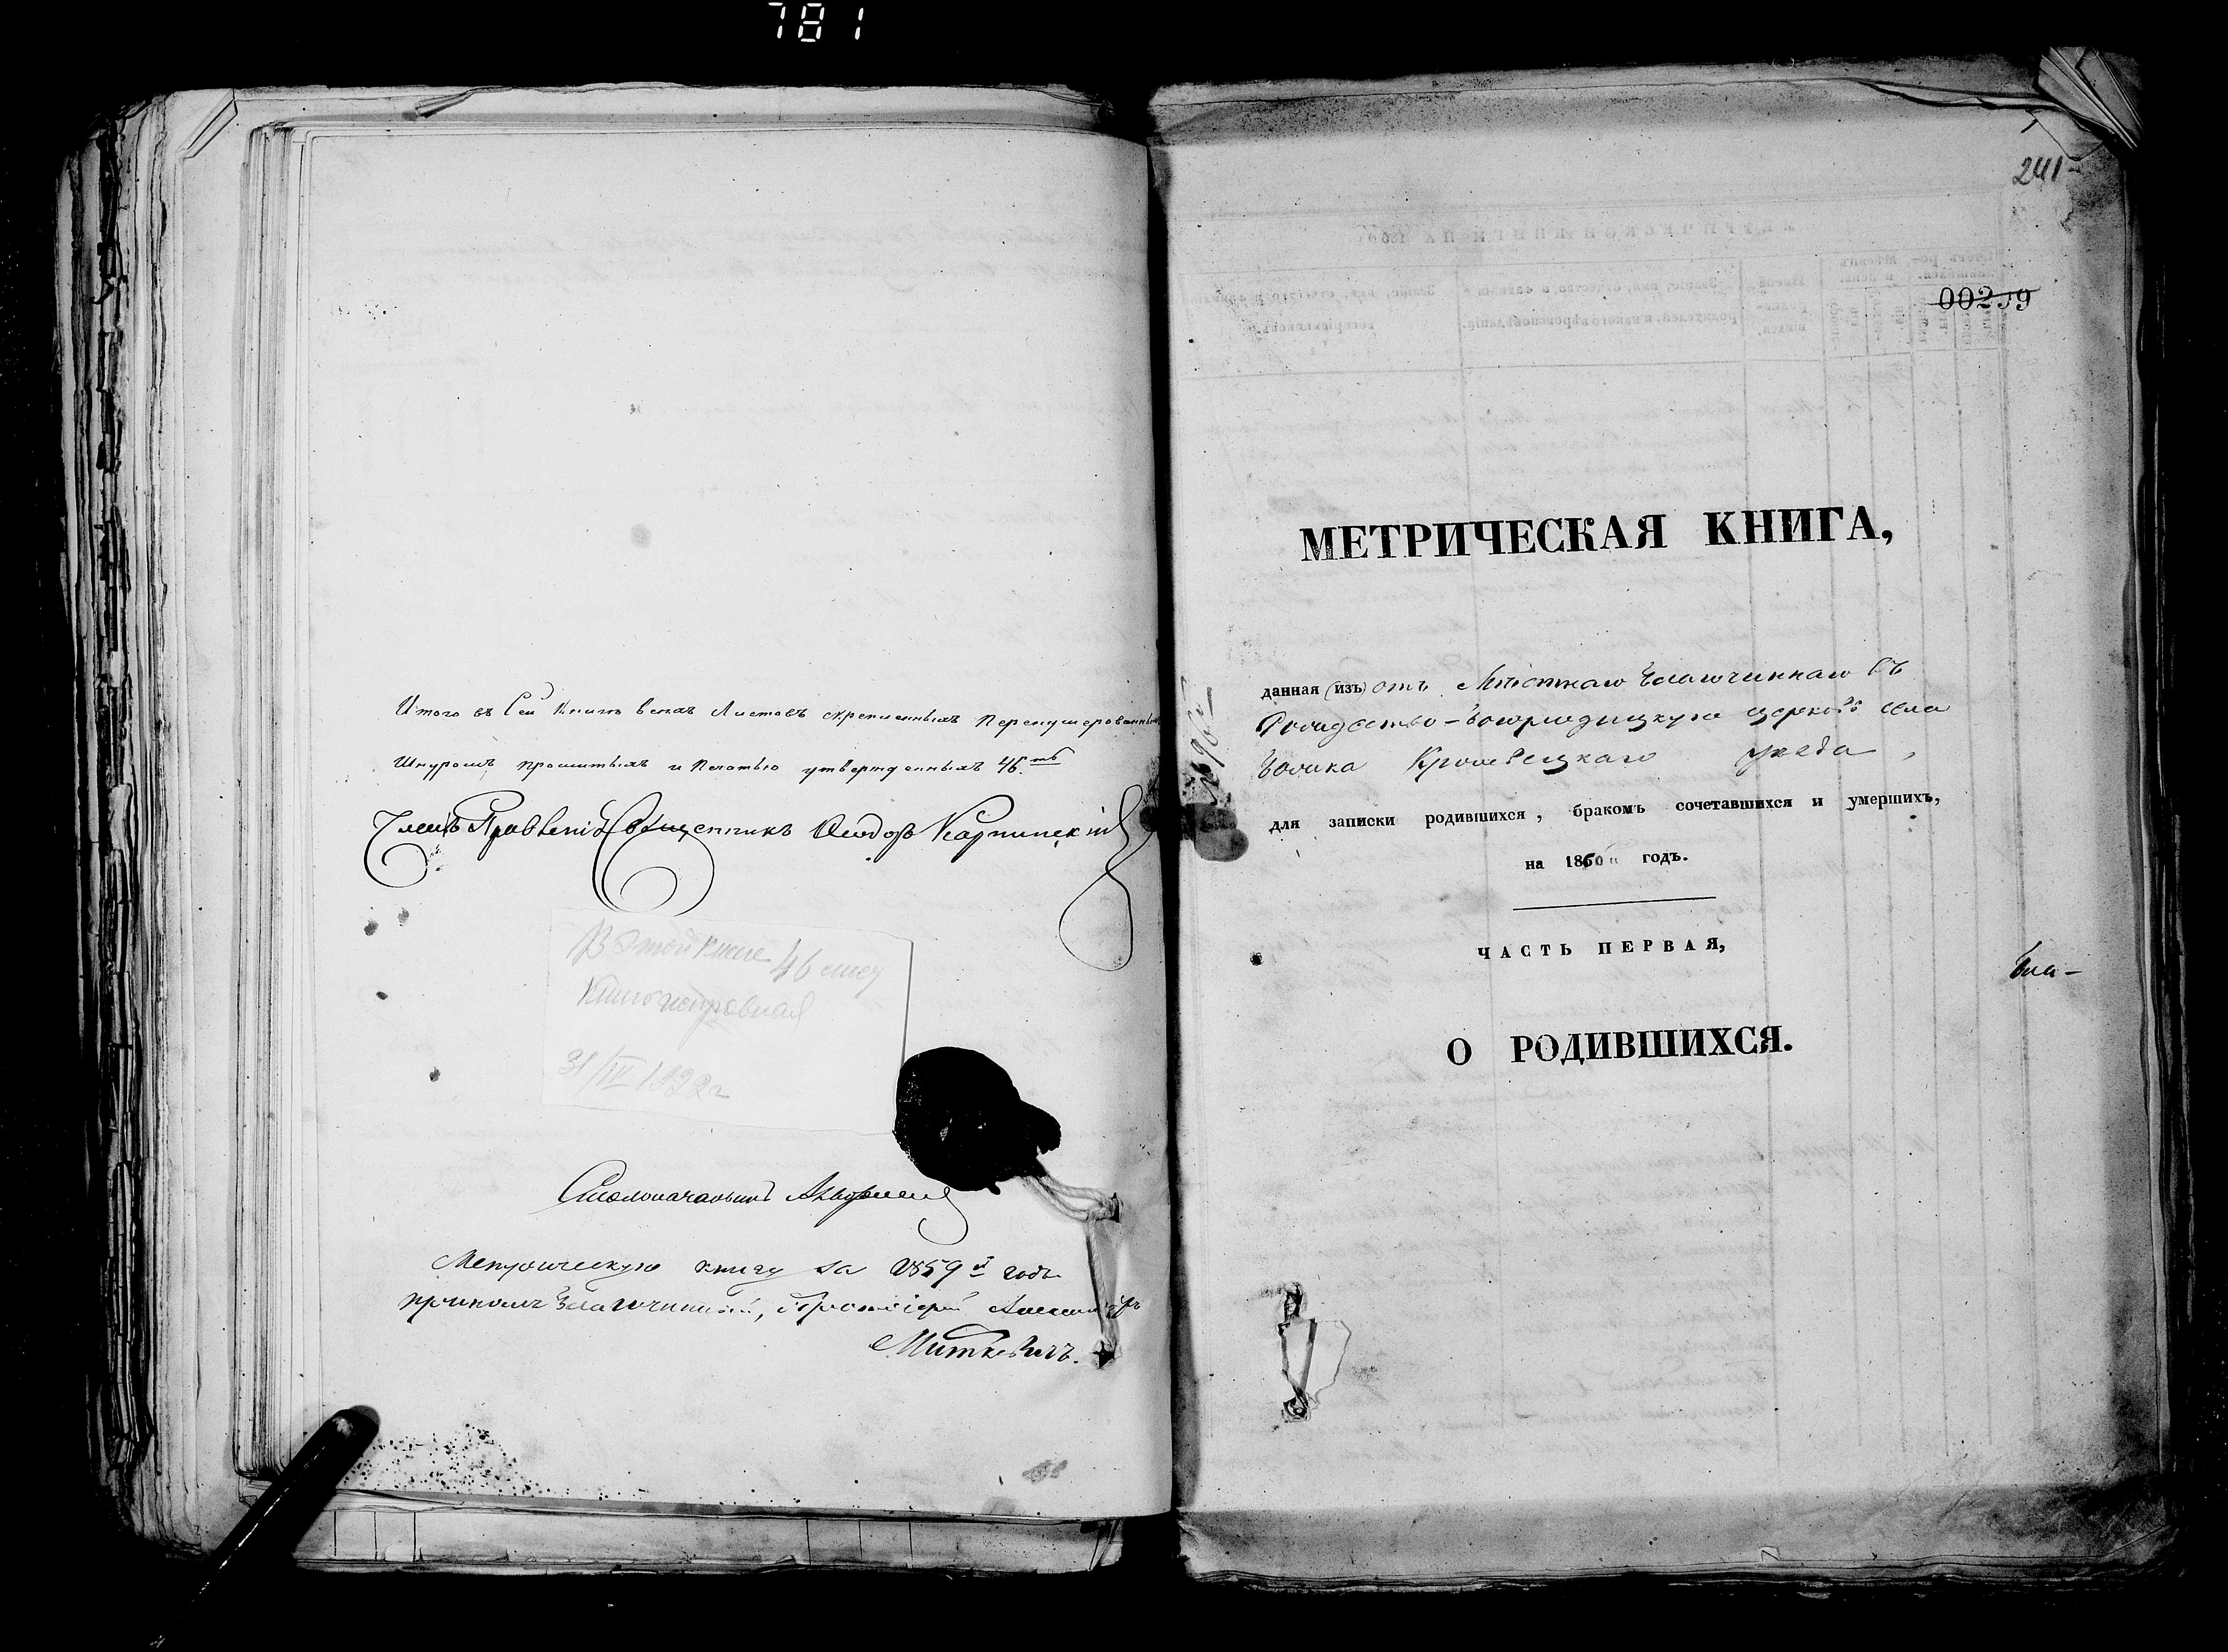 781
Итого въ Сей Книгѣ всехъ Листовъ скрепленныхъ Перенумерованныхъ
Шнуромъ прошитыхъ и Печатью утвержденныхъ 46.ть
Членъ Правленія Священникъ Ѳеодоръ Карпинскій
В этой книге 46 лист
Книга исправная
31/IV 1922 г
Столоначальникъ
Метрическую книгу за 1859й годъ
принялъ Благочинный, Протоіерей Александръ
Миткевичъ.
241
00239
МЕТРИЧЕСКАЯ КНИГА,
данная (изъ) отъ Мѣстнаго Благочиннаго въ
Рождество-Богородицкую церковь села
Кролевецкаго уѣзда,
для записки родившихся, бракомъ сочетавшихся и умершихъ,
на 1860й годъ.
ЧАСТЬ ПЕРВАЯ,
Бла-
О РОДИВШИХСЯ.